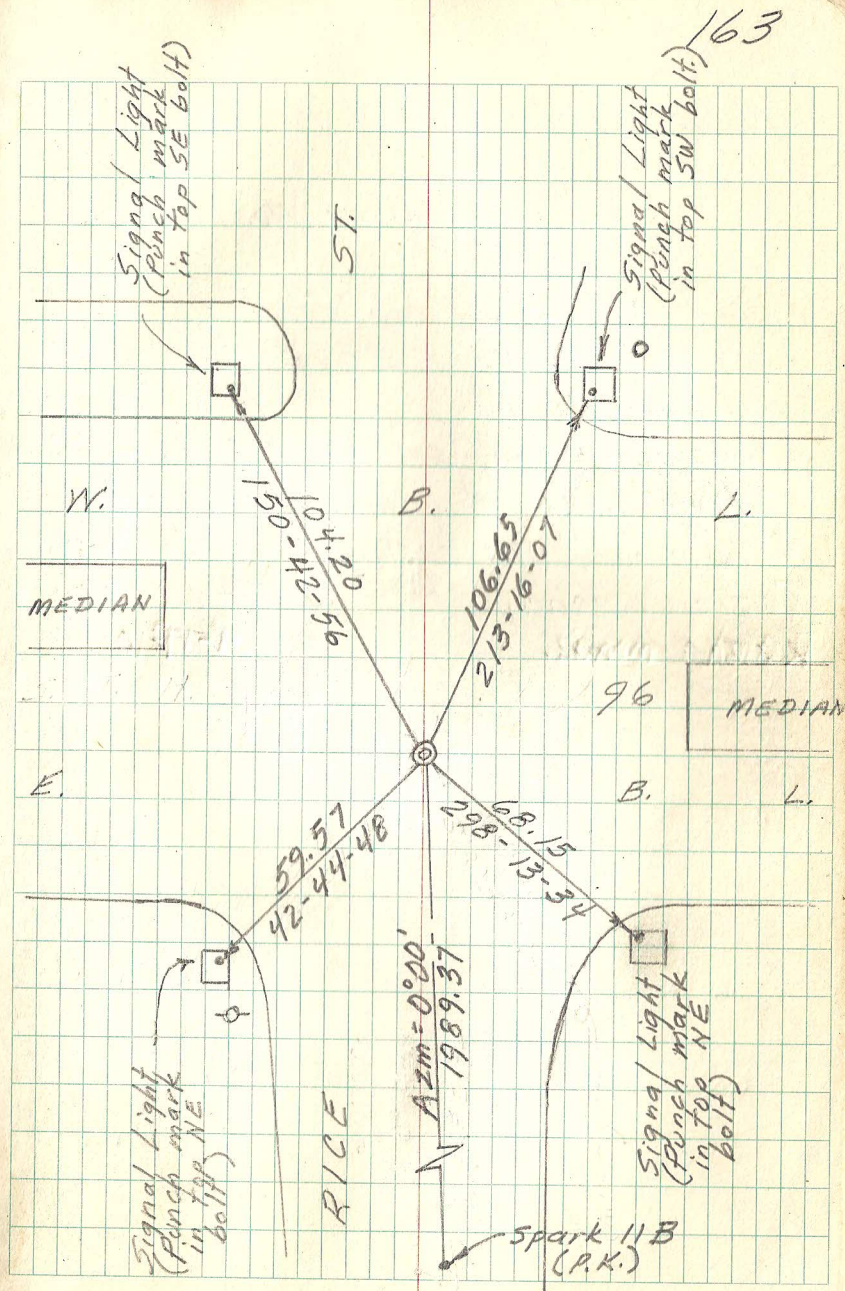 163
Signal Light
(Punch mark
in top SE bolt)
ST.
Signal Light
(Punch mark
in top SW bolt.)
W.
B.
L.
150-42-56
104.20
106.65
213-16-07
MEDIAN
96
MEDIAN
E.
B.
L.
59.57
42-44-48
68.15
298-13-34
Azm=0°00'
1989.37
Signal Light
(Punch mark
in top NE
bolt)
RICE
Signal Light
(Punch mark
in top NE
bolt)
Spark 11B
(P.K.)